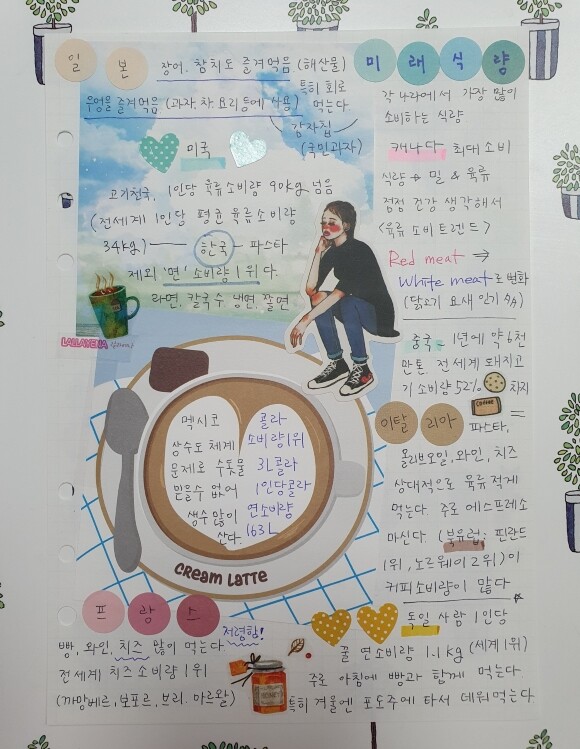 일본
장어, 참치도 즐겨먹음 (해산물)
특히 회로
먹는다
우엉을 즐겨먹음. (과자, 차, 요리 등에 사용)
감자칩
(국민과자)
미국
고기천국, 1인당 육류소비량 90kg 넘음
(전세계 1인당 평균 육류소비량
34kg)
한국 - 파스타
제외 '면' 소비량 1위다.
라면, 칼국수, 냉면, 쫄면
LALLAYENA
멕시코
상수도 체계
문제로 수돗물
믿을 수 없어
생수 많이
산다.
콜라
소비량 1위
3L 콜라
1인당 콜라
연소비량
163L
CREAM LATTE
프랑스
저렴함!
빵, 와인, 치즈 많이 먹는다
전세계 치즈 소비량 1위
(까망베르, 보포르, 브리, 마르왈)
미래식량
각 나라에서 가장 많이
소비하는 식량
캐나다 최대 소비
식량 → 밀 & 육류
점점 건강 생각해서
<육류 소비트렌드>
Red meat ⇒
White meat로 변화
(닭고기 요새 인기 수↑)
중국 - 1년에 약 6천
만톤, 전세계 돼지고
기 소비량 52% 차지
이탈리아 =
파스타,
올리브오일, 와인, 치즈
상대적으로 육류 적게
먹는다 주로 에스프레소
마신다 (북유럽; 핀란드
1위, 노르웨이 2위)이
커피소비량이 많다
독일 사람 1인당
꿀 연소비량 1.1kg (세계 1위)
주로 아침에 빵과 함께 먹는다
특히 겨울엔 포도주에 타서 데워먹는다